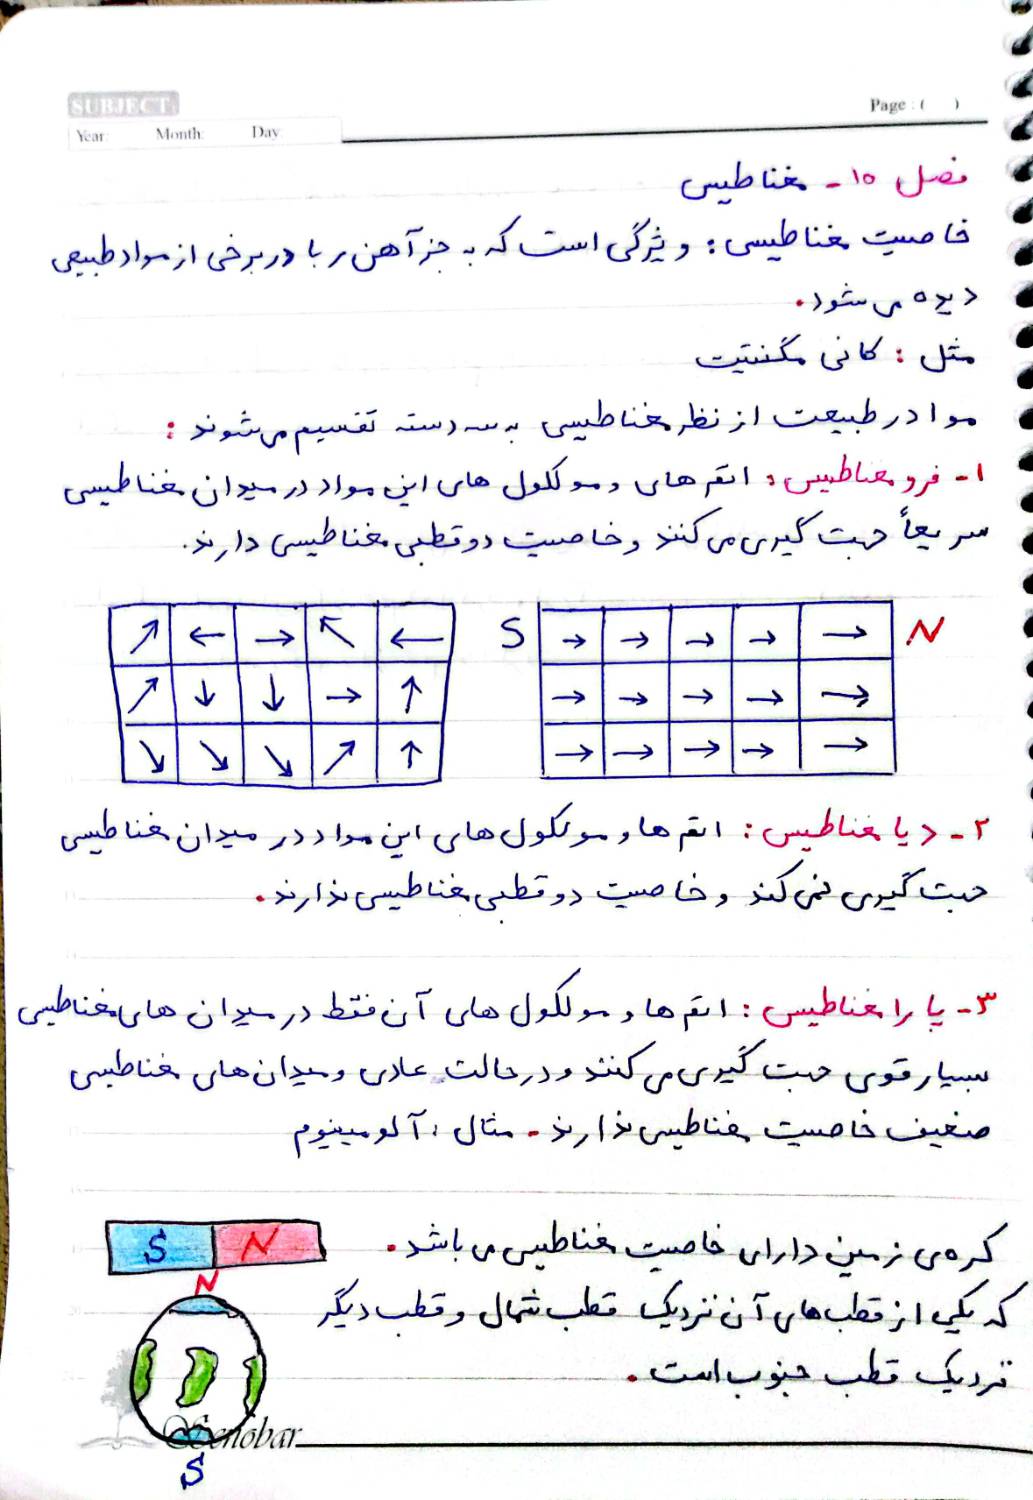 SUBJECT:
Page : ( )
Year: Month: Day:
فصل ۱۰ - مغناطیس
خاصیت مغناطیسی : ویژگی است که به جز آهن ربا در برخی از مواد طبیعی
دیده می شود.
مثل : کانی مگنتیت
مواد در طبیعت از نظر مغناطیسی به سه دسته تقسیم می شوند :
۱- فرو مغناطیس : اتم های و مولکول های این مواد در میدان مغناطیسی
سریعاً جهت گیری می کنند و خاصیت دو قطبی مغناطیسی دارند.
S N
۲- دیا مغناطیس : اتم ها و مولکول های این مواد در میدان مغناطیسی
جهت گیری نمی کند و خاصیت دو قطبی مغناطیسی ندارند.
۳- پارا مغناطیس : اتم ها و مولکول های آن فقط در میدان های مغناطیسی
بسیار قوی جهت گیری می کنند و در حالت عادی و میدان های مغناطیسی
ضعیف خاصیت مغناطیسی ندارند. مثال : آلومینیوم
کره ی زمین دارای خاصیت مغناطیسی می باشد.
S N
N
که یکی از قطب های آن نزدیک قطب شمال و قطب دیگر
نزدیک قطب جنوب است.
Senobar
S